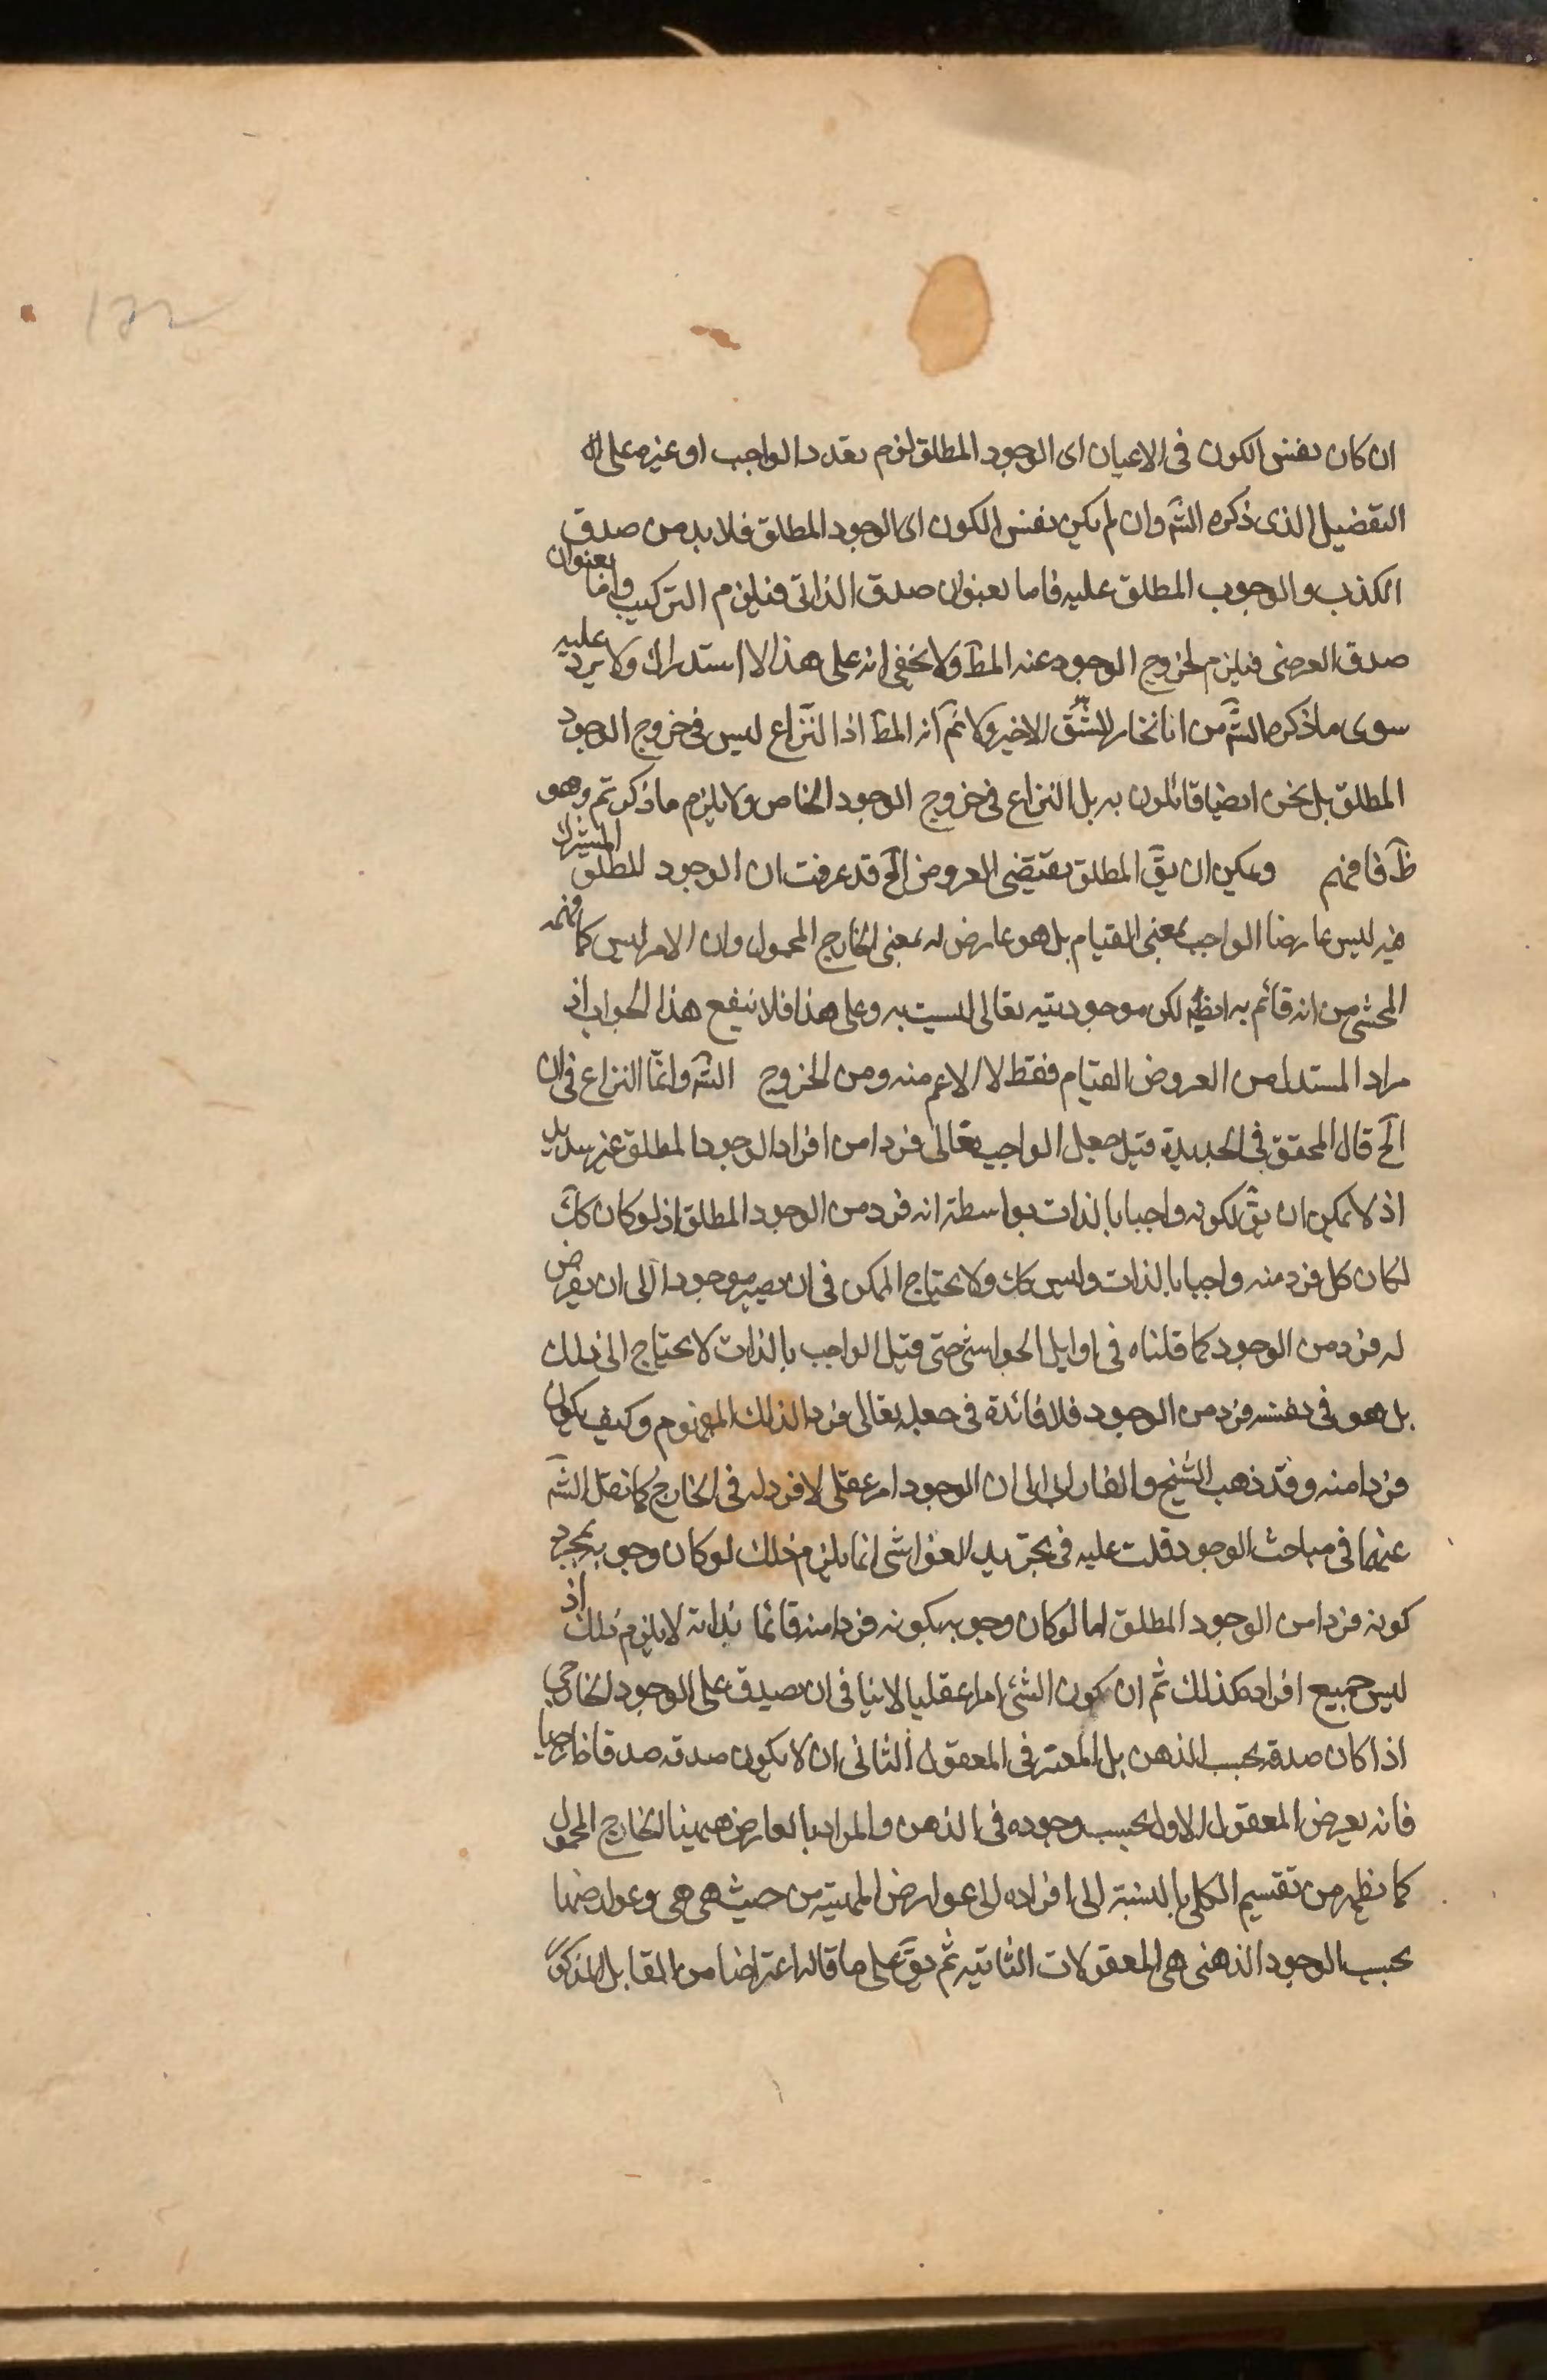 ان كان نفس الكون فى الاعيان اى الوجود المطلق لزم تعدد الواجب او غيره على
التفصيل الذى ذكره الشَ وان لم يكن نفس الكون اى الوجود المطلق فلا بد من صدق
الكذب والوجوب المطلق عليه فاما بعنوان صدق الذاتى فيلزم التركيب واما بعنوان
صدق العرضى فيلزم لخروج الوجود عنه المطَ ولا يخفى انه على هذا لا استدراك ولا يرد عليه
سوى ما ذكره الشَ من انا نختار الشق الاخير ولا نمَ انه المطَ اذ النزاع ليس فى خروج الوجود
المطلق بل نحن ايضا قائلون به بل النزاع فى خروج الوجود الخاص ولا يلزم ما ذكرتم وهو
ظَ فافهم ويمكن ان يقَ المطلق يقتضى العروض الخَ قد عرفت ان الوجود المطلق المشترك
فيه ليس عارضا الواجب بمعنى القيام بل هو عارض له بمعنى الخارج المحمول وان الامر ليس كما فهمه
المحشى من انه قائم به ايضا لكن موجوديته تعالى ليست به وعلى هذا فلا ينفع هذا الجواب اذ
مراد المستدل من العروض القيام فقط لا الاعم منه ومن الخروج الشَ وانما النزاع فى ان
الخَ قال المحقق فى الجديدة قيل جعل الواجب تعالى فردا من افراد الوجود المطلق غير سديد
اذ لا يمكن ان يقَ لكونه واجبا بالذات بواسطة انه فرد من الوجود المطلق اذ لو كان ككَ
لكان كل فرد منه واجبا بالذات وليس كك ولا يحتاج الممكن فى ان يصير موجودا الى ان يفرض
له فرد من الوجود كما قلناه فى اوايل الحواشى حتى قيل الواجب بالذات لا يحتاج الى ذلك
بل هو فى نفسه فرد من الوجود فلا فائدة فى جعله تعالى فردا لذلك المفهوم وكيف يكون
فردا منه وقد ذهب الشيخ والفارابى الى ان الوجود امر عقلى لا فرد له فى الخارج كما نقل الشَ
عنهما فى مباحث الوجود قلت عليه فى تجريد الغواشى انما يلزم ذلك لو كان وجوبه بمجرد
كونه فردا من الوجود المطلق اما لو كان وجوبه بكونه فردا منه قائما بذاته لا يلزم ذلك اذ
ليس جميع افراده كذلك ثم ان كون الشئ امرا عقليا لا ينافى ان يصدق على الوجود الخارجى
اذا كان صدقه بحسب الذهن بل المعتبر فى المعقول الثانى ان لا يكون صدقه صدقا خارجيا
فانه يعرض المعقول الاول بحسب وجوده فى الذهن والمراد بالعارض ههنا الخارج المحمول
كما يظهر من تقسيم الكلى بالنسبة الى افراده الى عوارض المهية من حيث هى هى وعوارضها
بحسب الوجود الذهنى هى المعقولات الثانية ثم يقَ على ما قاله اعتراضا من المقابل المذكور